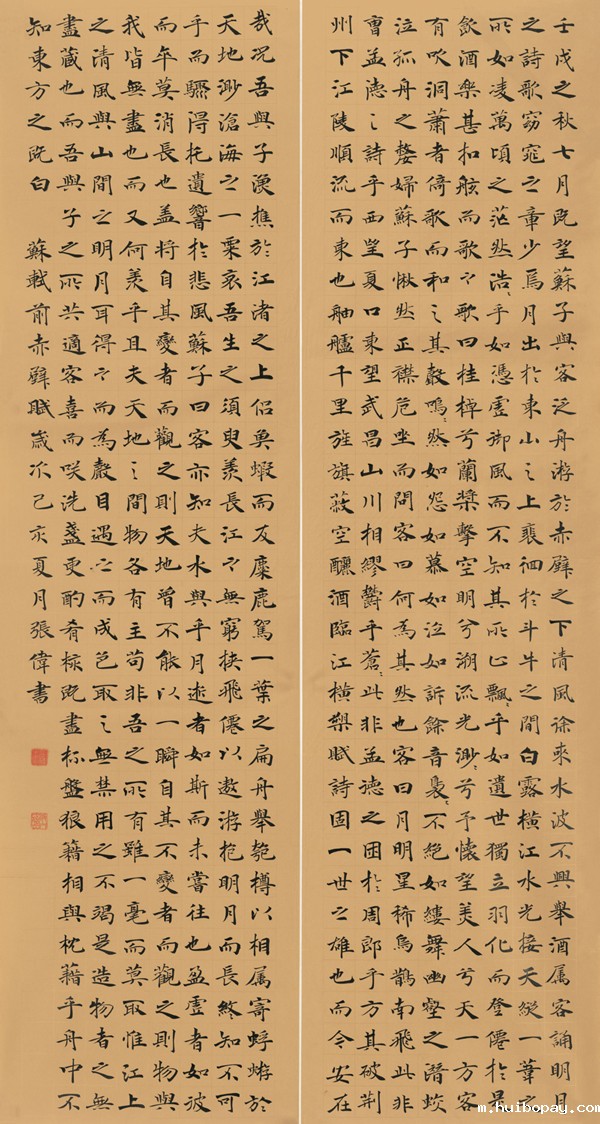 壬戌之秋七月既望蘇子與客泛舟游於赤壁之下清風徐來水波不興舉酒属客誦明月
之詩歌窈窕之章少焉月出於東山之上裵徊於斗牛之間白露橫江水光接天縱一葦之
所如凌萬頃之茫然浩〻乎如憑虛御風而不知其所止飄〻乎如遺世獨立羽化而登僊於是
飲酒樂甚扣舷而歌之歌曰桂棹兮蘭槳擊空明兮溯流光渺〻兮予懷望美人兮天一方客
有吹洞蕭者倚歌而和之其聲嗚〻然如怨如慕如泣如訴餘音裊〻不絕如縷舞幽壑之潛蛟
泣孤舟之嫠婦蘇子愀然正襟危坐而問客曰何為其然也客曰月明星稀烏鵲南飛此非
曹孟德之詩乎西望夏口東望武昌山川相繆鬱乎蒼〻此非孟德之困於周郎乎方其破荆
州下江陵順流而東也舳艫千里旌旗蔽空釃酒臨江橫槊賦詩固一世之雄也而今安在
哉況吾與子漁樵於江渚之上侣魚蝦而友麋鹿駕一葉之扁舟舉匏樽以相属寄蜉蝣於
天地渺滄海之一粟哀吾生之須臾羨長江之無窮挟飛僊以遨游抱明月而長終知不可
乎而驟得托遺響於悲風蘇子曰客亦知夫水與乎月逝者如斯而未嘗往也盈虛者如彼
而卒莫消長也盖將自其變者而觀之則天地曾不能以一瞬自其不變者而觀之則物與
我皆無盡也而又何羨乎且夫天地之間物各有主苟非吾之所有雖一毫而莫取惟江上
之清風與山間之明月耳得之而為聲目遇之而成色取之無禁用之不竭是造物者之無
盡藏也而吾與子之所共適客喜而咲洗盞更酌肴核既盡杯盤狼籍相與枕藉乎舟中不
知東方之既白 蘇軾前赤壁賦歲次己亥夏月張偉書
m.huibopay.com